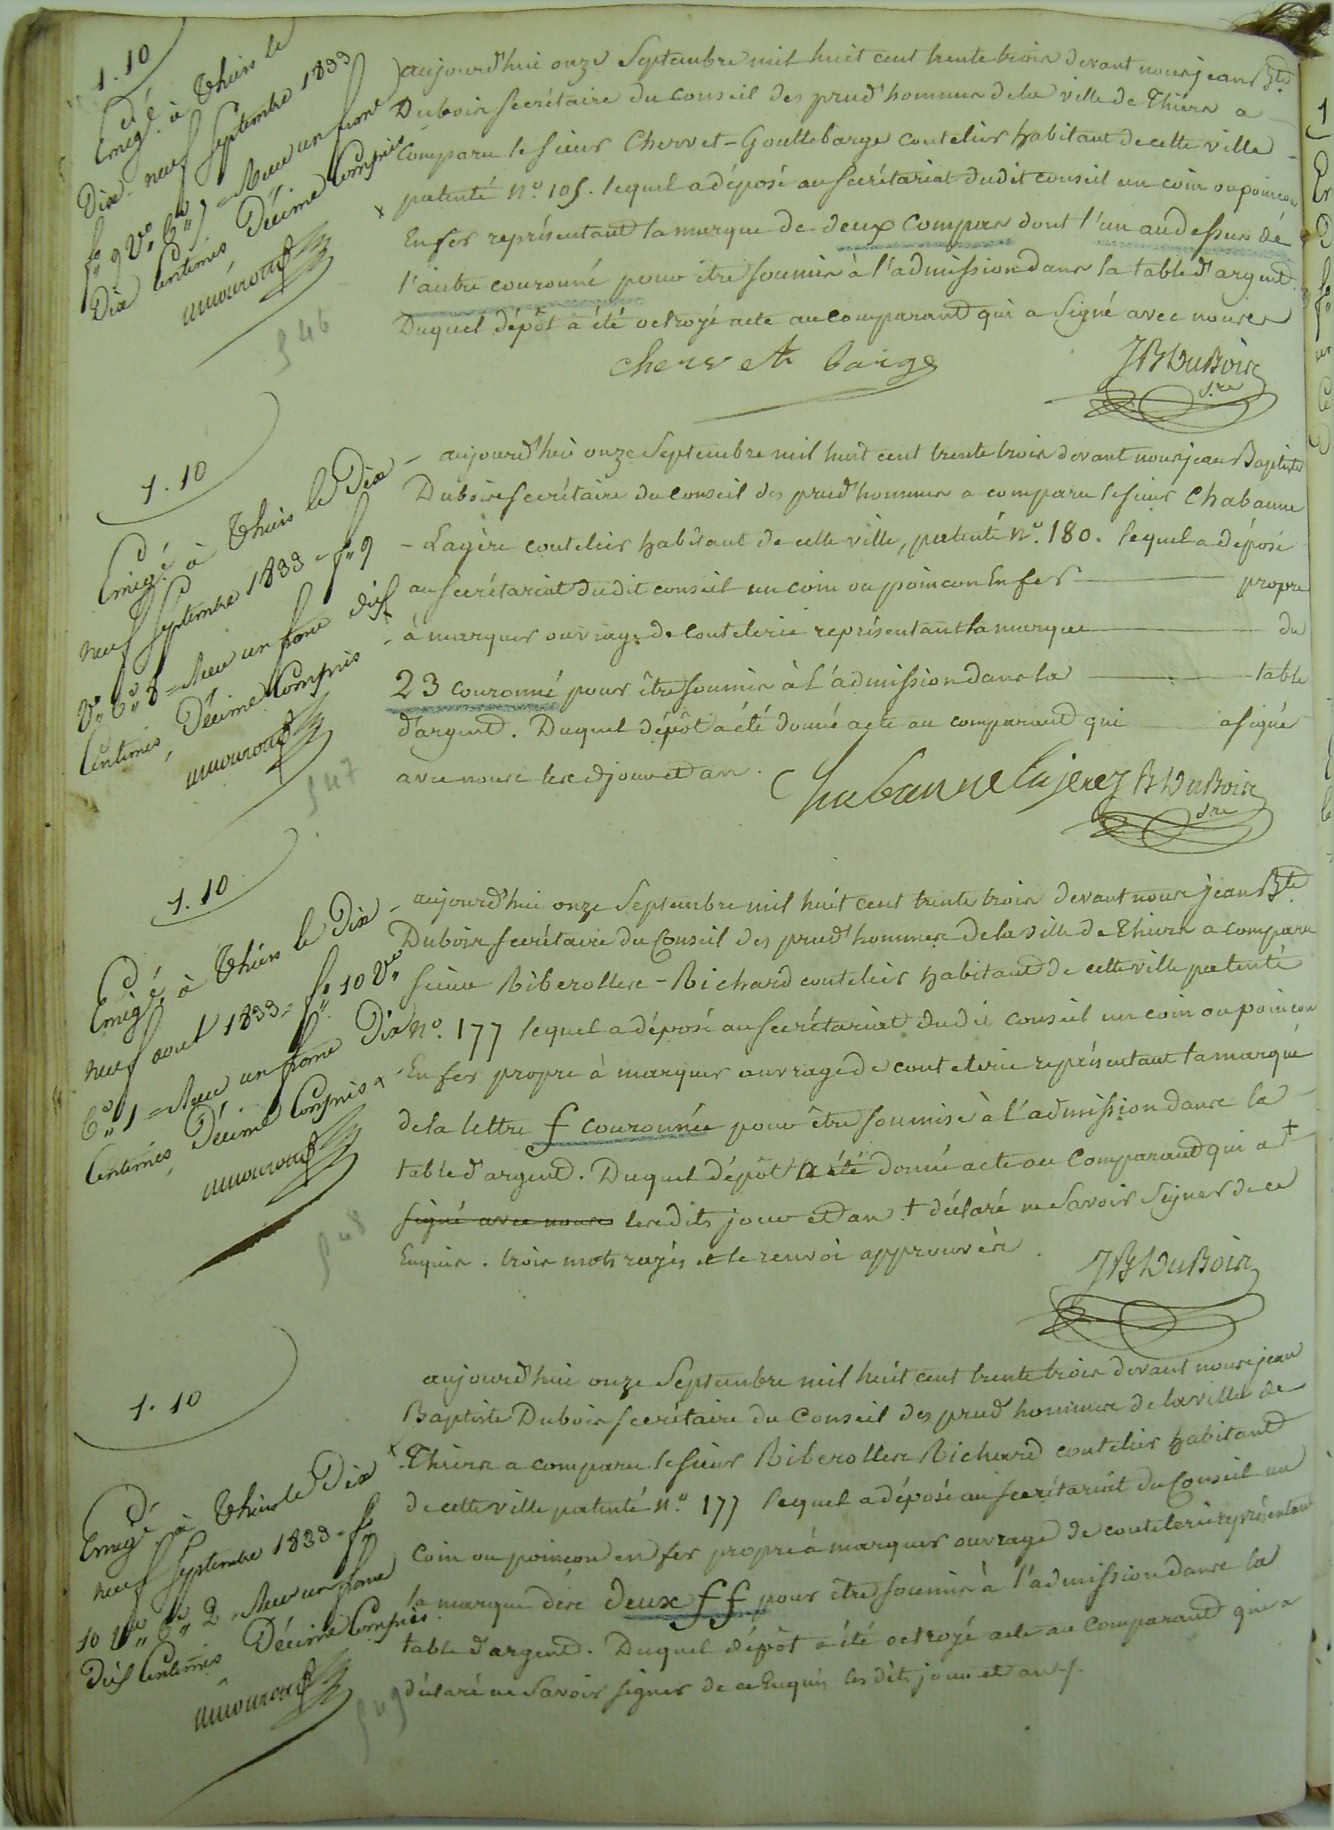 1.10
Enregé à Thiers le
Dix neuf Septembre 1833
fo 9 Vo Cse 7 = Reçu un franc
Dix Centimes, Décime Compris
aujourd'hui onze Septembre mil huit cent trente trois devant nous jean Bte
Dubois Secrétaire du Conseil des prud'hommes de la ville de Thiers a
Comparu le sieur Chervet-Gouttebarge coutelier habitant de cette ville
patenté No. 105. lequel a déposé au Secrétariat dudit conseil un coin ou poincon
x En fer représentant la marque de deux Compas dont l'un au dessus de
l'autre couronné pour être Soumis à l'admission dans la table d'argent.
Duquel dépôt a été octroyé acte au comparant qui a Signé avec nous
chervet barge
JB Dubois
S.re
546
1.10
Enregé à Thiers le Dix
neuf Septembre 1833 - fo 9
Vo Cse 8 = Reçu un franc dix
Centimes, Décime Compris
- aujourd'hui onze Septembre mil huit cent trente trois devant nous jean Baptiste
Dubois Secrétaire du Conseil des prud'hommes a comparu le sieur Chabanne
- Lagère coutelier habitant de cette ville, patenté No. 180. lequel a déposé
au Secrétariat dudit conseil un coin ou poincon En fer propre
à marquer ouvrage de Coutelerie représentant la marque du
23 couronné pour être Soumis à L'admission dans la table
d'argent. Duquel dépôt a été donné acte au comparant qui a signé
avec nous lesd jour et an.
Chabanne Lajere JB Dubois
S.re
547
1.10
Enregé à Thiers le Dix
neuf aout 1833 = fo 10 Vo
Cse 1 = Reçu un franc Dix
Centimes, Décime Compris x
- aujourd'hui onze Septembre mil huit cent trente trois devant nous jean Bte
Dubois Secrétaire du Conseil des prud'hommes de la ville de Thiers a comparu
sieur Riberolles-Richard coutelier habitant de cette ville patenté
No. 177 lequel a déposé au Secrétariat dudit conseil un coin ou poincon
En fer propre à marquer ouvrage de coutelerie représentant la marque
de la lettre f couronnée pour être Soumise à l'admission dans la
table d'argent. Duquel dépôt a été donné acte au Comparant qui a +
signé avec nous lesdits jour et an. + déclaré ne Savoir Signer de ce
Enquis. trois mots rayés et le renvoi approuvés.
JB Dubois
548
1.10
Enregé à Thiers le Dix
neuf Septembre 1833 - fo
10 Vo Cse 2 = Reçu un franc
Dix Centimes Décime Compris.
aujourd'hui onze Septembre mil huit cent trente trois devant nous jean
Baptiste Dubois Secrétaire du Conseil des prud'hommes de la ville de
x Thiers a comparu le sieur Riberolles Richard coutelier habitant
de cette ville patenté No 177 lequel a déposé au Secrétariat du Conseil un
Coin ou poincon en fer propre à marquer ouvrage de coutelerie représentant
la marque des deux ff pour être Soumis à l'admission dans la
table d'argent. Duquel dépôt a été octroyé acte au Comparant qui a
déclaré ne Savoir signer de ce Enquis les dits jour et an.
549